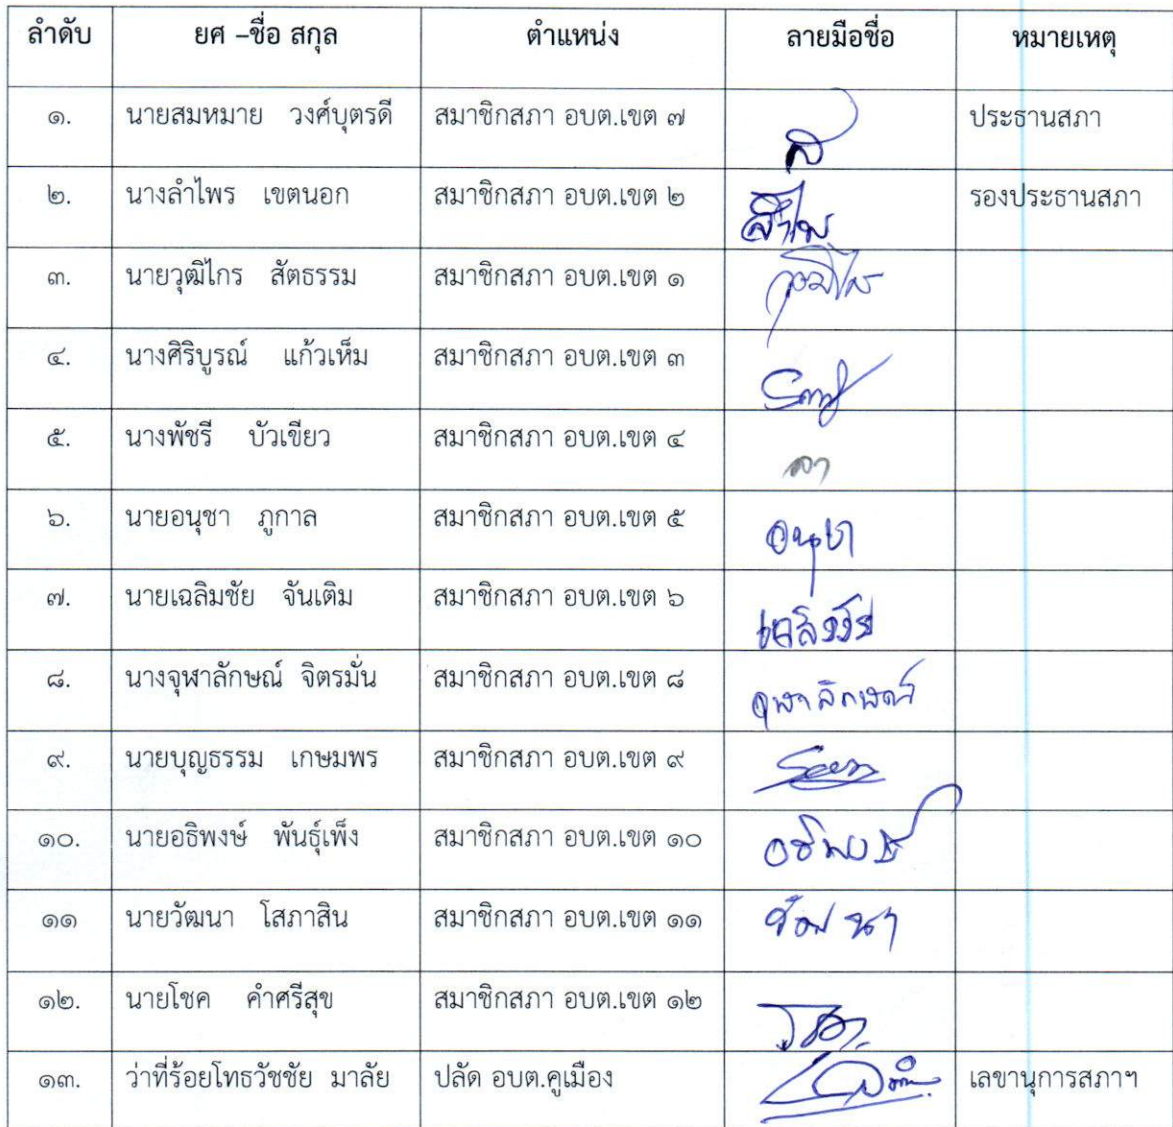 ลำดับ ยศ –ชื่อ สกุล ตำแหน่ง ลายมือชื่อ หมายเหตุ
๑. นายสมหมาย วงศ์บุตรดี สมาชิกสภา อบต.เขต ๗ ส ประธานสภา
๒. นางลำไพร เขตนอก สมาชิกสภา อบต.เขต ๒ รองประธานสภา
๓. นายวุฒิไกร สัตธรรม สมาชิกสภา อบต.เขต ๑
๔. นางศิริบูรณ์ แก้วเห็ม สมาชิกสภา อบต.เขต ๓
๕. นางพัชรี บัวเขียว สมาชิกสภา อบต.เขต ๔
๖. นายอนุชา ภูกาล สมาชิกสภา อบต.เขต ๕ อนุชา
๗. นายเฉลิมชัย จันเติม สมาชิกสภา อบต.เขต ๖ เฉลิมชัย
๘. นางจุฬาลักษณ์ จิตรมั่น สมาชิกสภา อบต.เขต ๘ จุฬาลักษณ์
๙. นายบุญธรรม เกษมพร สมาชิกสภา อบต.เขต ๙
๑๐. นายอธิพงษ์ พันธุ์เพ็ง สมาชิกสภา อบต.เขต ๑๐ อธิพงษ์
๑๑ นายวัฒนา โสภาสิน สมาชิกสภา อบต.เขต ๑๑ วัฒนา
๑๒. นายโชค คำศรีสุข สมาชิกสภา อบต.เขต ๑๒
๑๓. ว่าที่ร้อยโทธวัชชัย มาลัย ปลัด อบต.คูเมือง เลขานุการสภาฯ